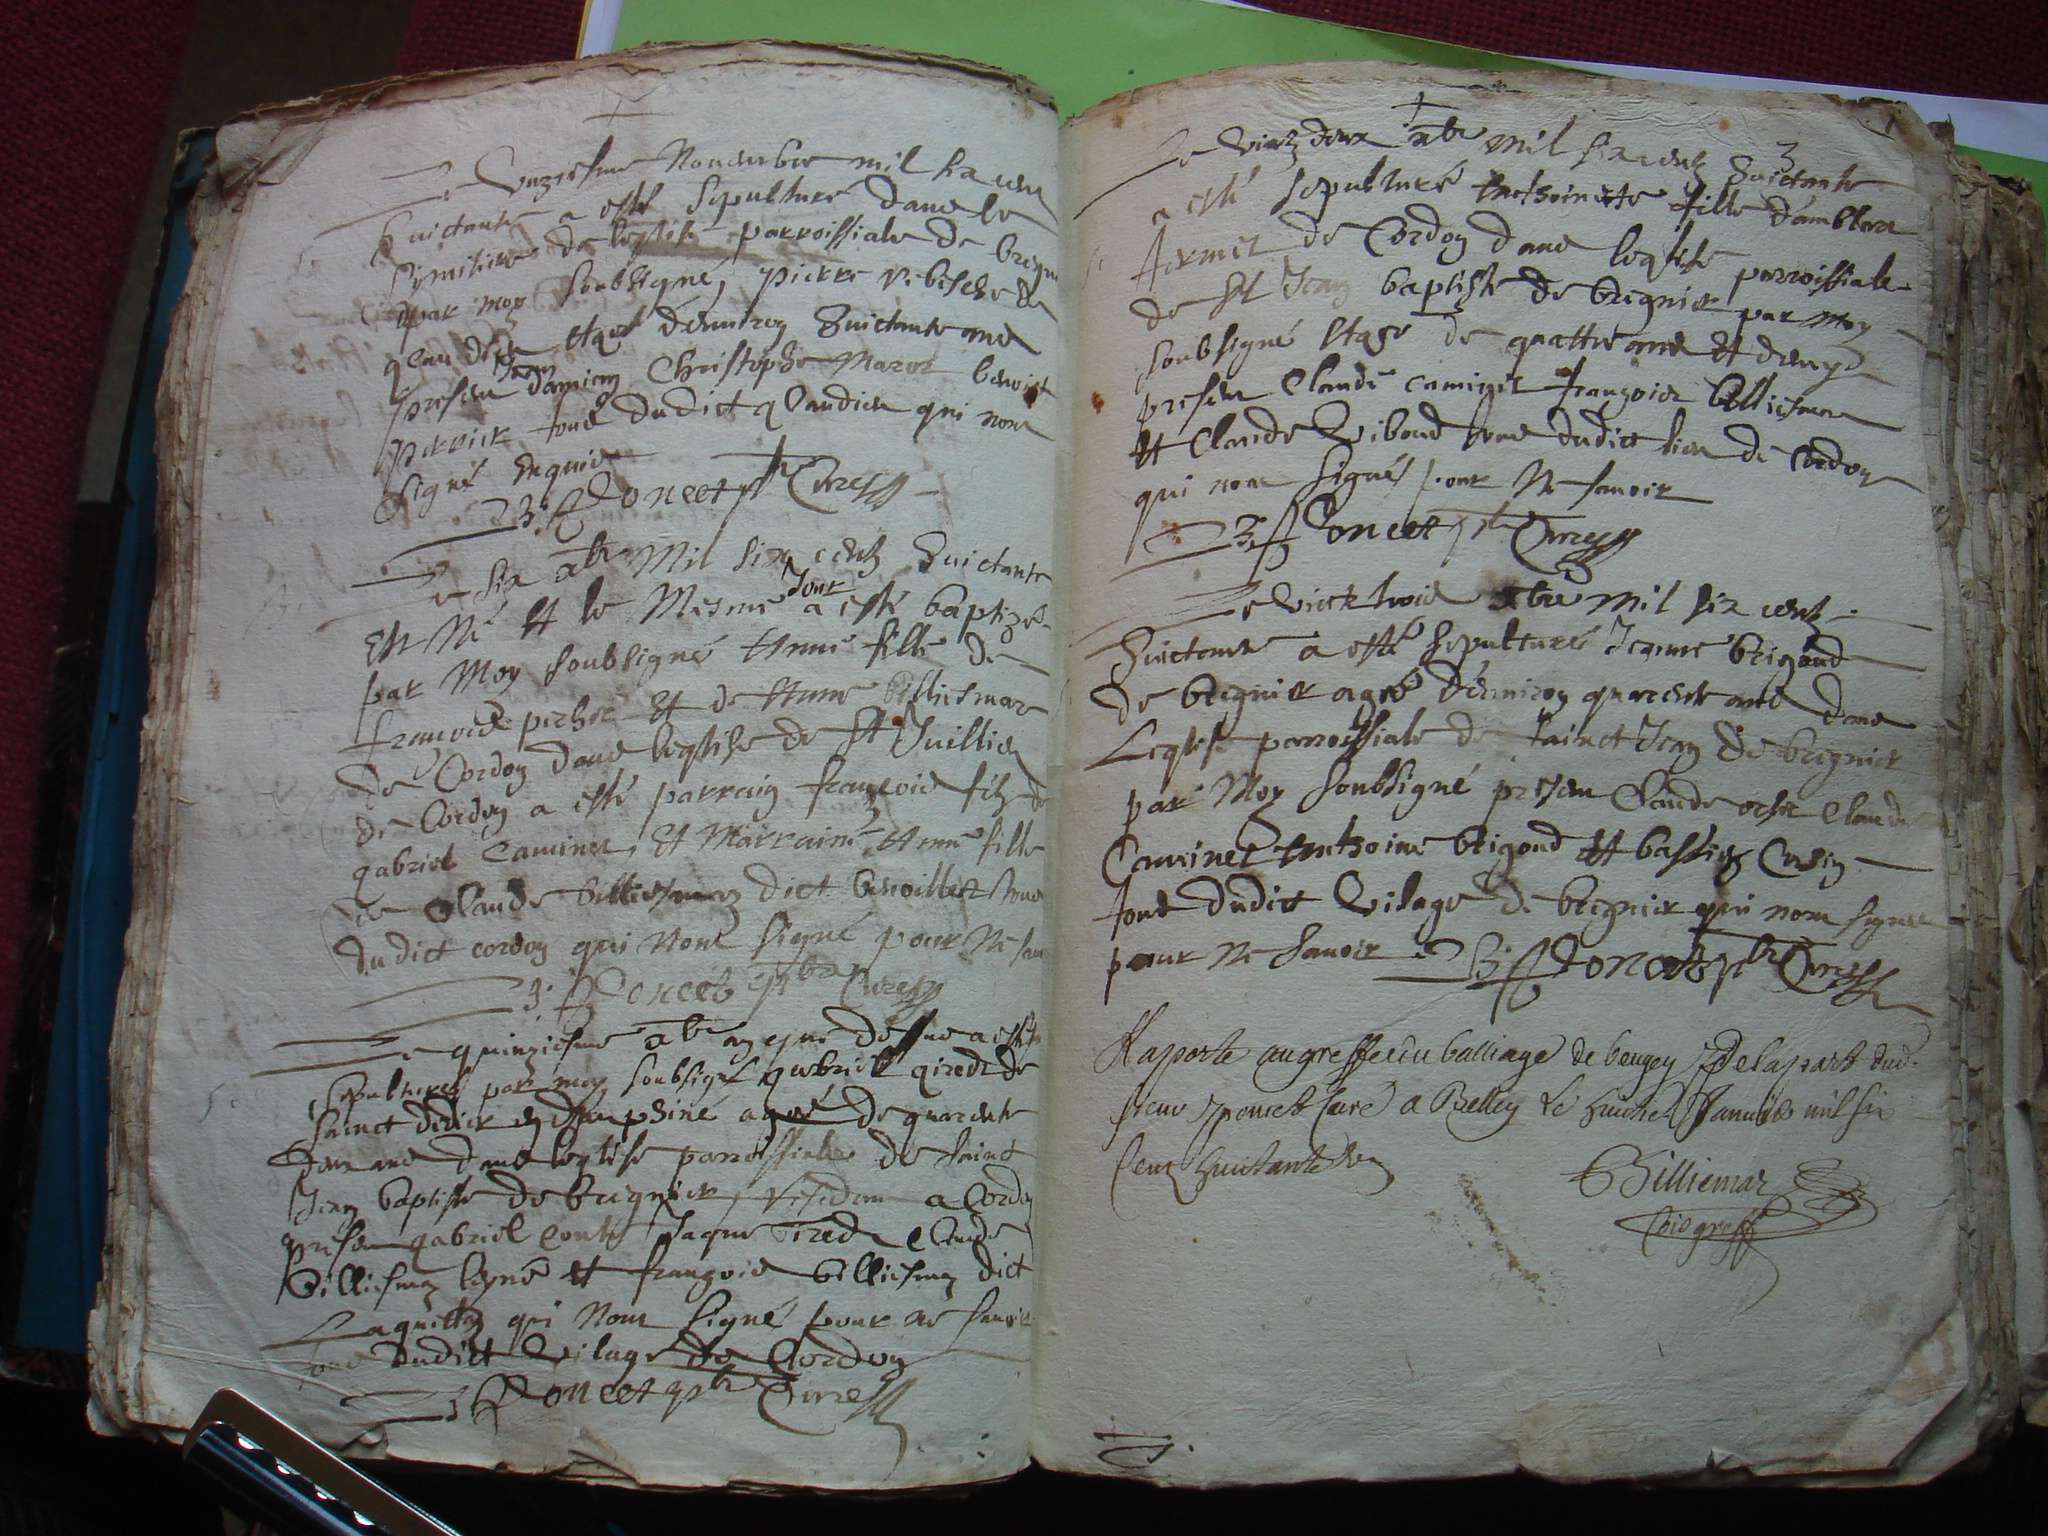 Le unziesme Novembre mil six cens
huictante a esté sepulturé dans le
simitiere de leglise parroissiale de bregni
par moy soubsigné, pierre
agé denviron huictante ans
presens Christophe Marot benoist
tous dudict qui nont
signé enquis
B: Poncet pbr Curé
Le six xbre Mil six cents huictante
Est Né Et le Mesme Jour a esté baptizé
par Moy soubsigné Anne fille de
françois pichot Et de Anne billiemaz
de Cordon dans leglise de St Juillien
de Cordon a esté parrain françois filz de
gabriel Caminet, Et Marraine Anne fille
de Claude billiemaz dict benoillet tous
dudict cordon qui Nont signé pour Ne sav
B: Poncet pbr Curé
Le quinziesme xbre an que dessus a esté
sepulturé par moy soubsigné gabriel giredt de
sainct didier en dauphiné agé de quarente
deux ans dans leglise parroissiale de sainct
Jean baptiste de bregnier, residant a Cordon
presens gabriel conte Jaque Claude
billiemaz et françois billiemaz dict
qui Nont signé pour ne savoir
tous dudict vilage de Cordon
B Poncet pbr Curé
3
Le vint deux xbre mil six cents huictante
a esté sepulturé Anthoinette fille damblard
de Cordon dans leglise parroissiale
de St Jean baptiste de bregnier par Moy
soubsigné Eagé de quattre ans Et demy
presens Claude caminet françois billiemaz
Et Claude Viboud tous dudict lieu de Cordon
qui nont signés pour Ne savoir
B: Poncet pbr Curé
Le vint trois xbre mil six cents
huictante a esté sepulturé Jeanne brigaud
de bregnier agée denviron quarente ans dans
Leglise parroissiale de sainct Jean de bregnier
par Moy soubsigné presens Claude Claude
Caminet Anthoine brigoud Et bastien
tous dudict vilage de bregnier qui nont signés
pour Ne savoir B: Poncet pbr Curé
Raporté au greffe du balliage de beugey de la part dud.
sieur poncet Curé a Belley le huictie Janvier mil six
Cent huictante un
Billiemaz